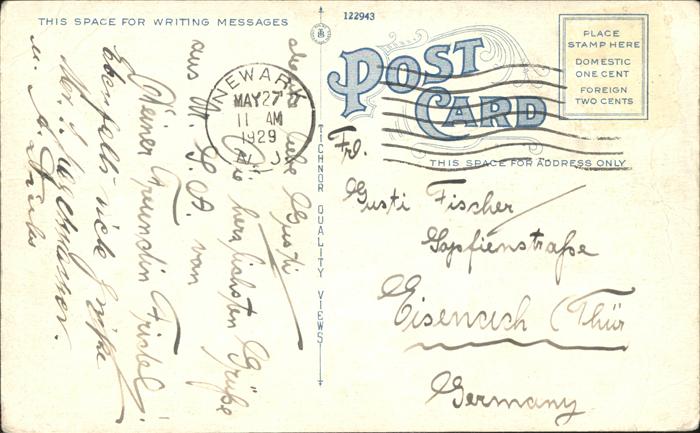 THIS SPACE FOR WRITING MESSAGES
liebe Gusti
Die herzlichsten Grüße
aus U.S.A. von
Deiner Freundin Friedel.
Ebenfalls viele Grüße
u. A.
NEWARK
MAY 27
11 AM
1929
N.J.
TICHNOR QUALITY VIEWS
122943
POST
CARD
PLACE
STAMP HERE
DOMESTIC
ONE CENT
FOREIGN
TWO CENTS
THIS SPACE FOR ADDRESS ONLY
Frl.
Gusti Fischer
Sophienstraße
Eisenach (Thür
Germany